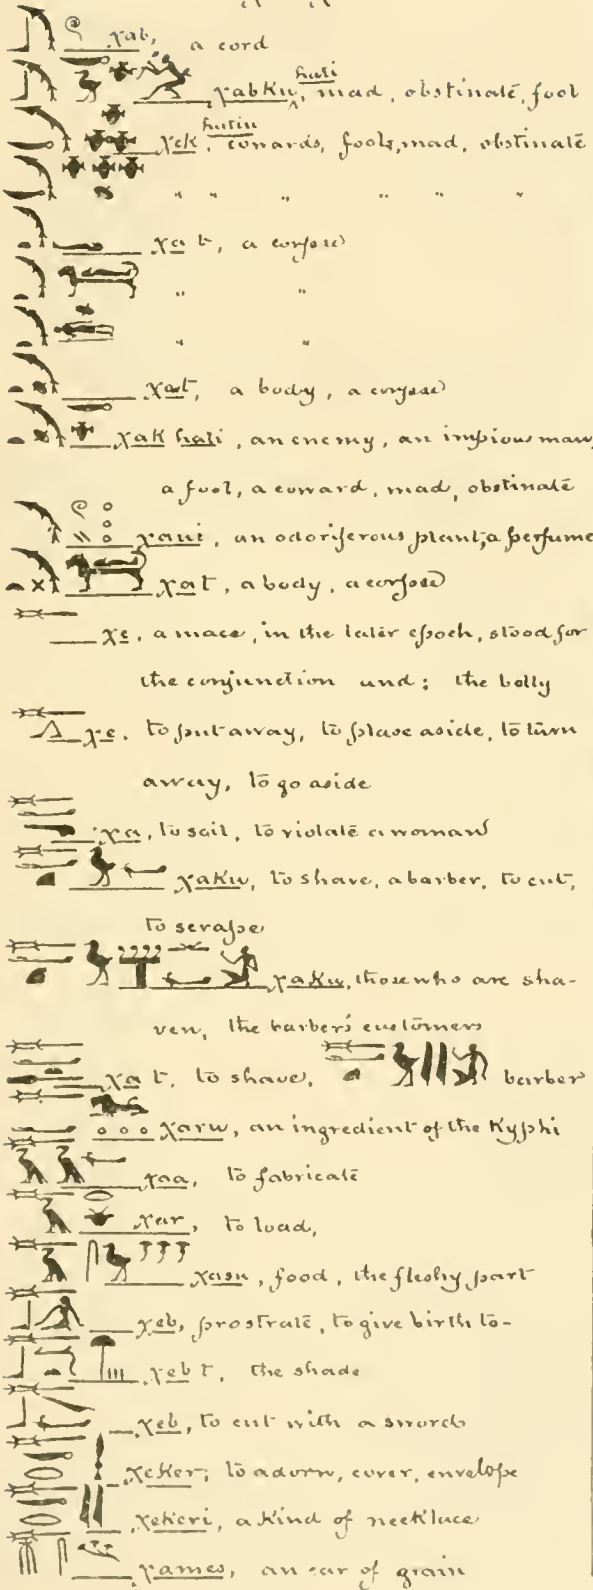 χab, a cord
hati
χabku, mad, obstinate, fool
hatiu
χek, cowards, fools, mad, obstinate
" " " " " "
χa t, a corpse
" "
" "
χat, a body, a corpse
χak hati, an enemy, an impious man,
a fool, a coward, mad, obstinate
χaui, an odoriferous plant, a perfume
χat, a body, a corpse
χe, a mace, in the later epoch, stood for
the conjunction und; the belly
χe, to put away, to place aside, to turn
away, to go aside
χa, to soil, to violate a woman
χaku, to shave, a barber, to cut,
to scrape
χaku, those who are sha-
ven, the barber's customers
χa t, to shave, barber
χaru, an ingredient of the Kyphi
χaa, to fabricate
χar, to load,
χasu, food, the fleshy part
χeb, prostrate, to give birth to-
χeb t, the shade
χeb, to cut with a sword
χeker, to adorn, cover, envelope
χekeri, a kind of necklace
χames, an ear of grain